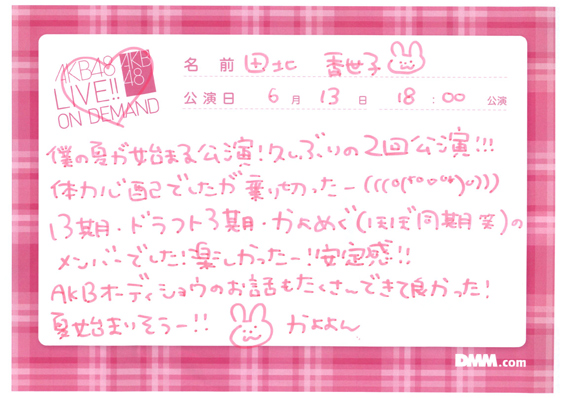 AKB48
LIVE!!
ON DEMAND
AKB
48
名前 田北 香世子
公演日 6月 13日 18:00 公演
僕の夏が始まる公演!久しぶりの2回公演!!!
体力心配でしたが乗り切ったー
13期・ドラフト3期・かよめぐ(ほぼ同期笑)の
メンバーでした!楽しかったー!安定感!!
AKBオーディショウのお話もたくさんできて良かった!
夏始まりそうー!! かよよん
DMM.com